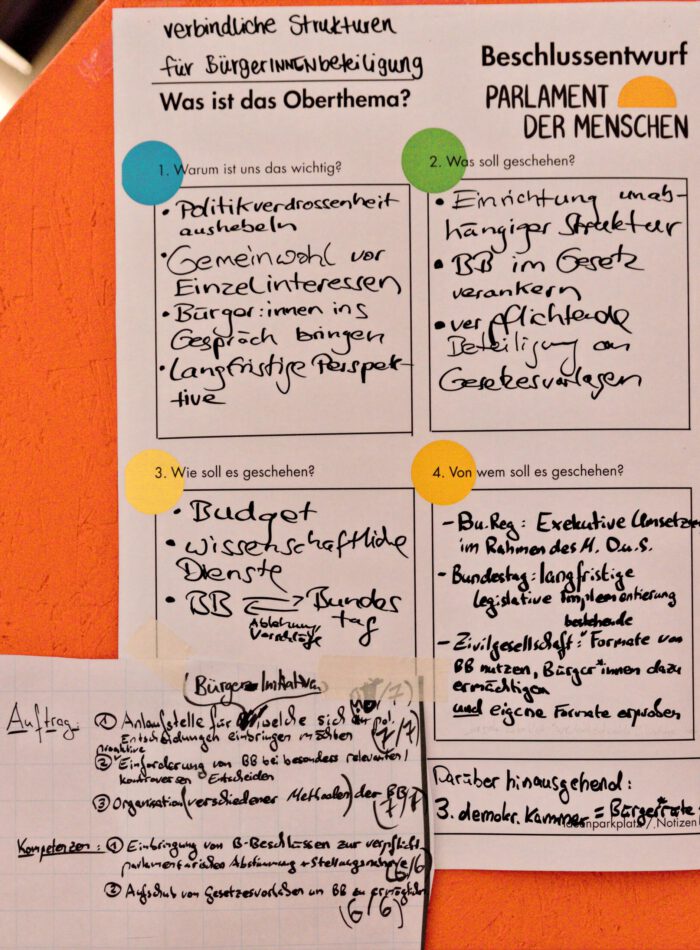 verbindliche Strukturen
für BürgerINNENbeteiligung
Was ist das Oberthema?
Beschlussentwurf
PARLAMENT
DER MENSCHEN
1. Warum ist uns das wichtig?
• Politikverdrossenheit
aushebeln
• Gemeinwohl vor
Einzelinteressen
• Bürger:innen ins
Gespräch bringen
• Langfristige Perspek-
tive
2. Was soll geschehen?
• Einrichtung unab-
hängiger Struktur
• BB im Gesetz
verankern
• verpflichtende
Beteiligung an
Gesetzesvorlagen
3. Wie soll es geschehen?
• Budget
• wissenschaftliche
Dienste
• BB Bundes
tag
Ablehnung
Vorschläge
4. Von wem soll es geschehen?
- Bu.Reg: Exekutive Umsetzung
im Rahmen des M. D. u. S.
- Bundestag: langfristige
legislative Implementierung
bestehende
- Zivilgesellschaft: Formate von
BB nutzen, Bürger*innen dazu
ermächtigen
und eigene Formate erproben
Darüber hinausgehend:
3. demokr. Kammer = Bürger*räte
Ideenparkplatz / Notizen
Bürger-Initiativen
(7/7)
Auftrag: ① Anlaufstelle für welche sich pol.
Entscheidungen einbringen möchten (7/7)
proaktive
② Einforderung von BB bei besonders relevanten/
kontroversen Entscheiden
③ Organisation (verschiedener Methoden) der BB (7/7)
Kompetenzen: ① Einbringung von B-Beschlüssen zur verpflicht.
parlamentarischen Abstimmung + Stellungnahme (6/6)
② Aufschub von Gesetzesvorhaben um BB zu ermöglichen
(6/6)